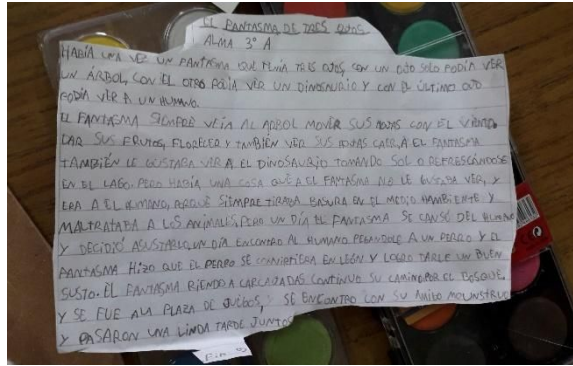 EL FANTASMA DE TRES OJOS
ALMA 3° A
HABÍA UNA VEZ UN FANTASMA QUE TENÍA TRES OJOS, CON UN OJO SOLO PODÍA VER
UN ÁRBOL, CON EL OTRO PODÍA VER UN DINOSAURIO Y CON EL ÚLTIMO OJO
PODÍA VER A UN HUMANO.
EL FANTASMA SIEMPRE VEÍA AL ARBOL MOVER SUS HOJAS CON EL VIENTO,
DAR SUS FRUTOS, FLORECER Y TAMBIÉN VER SUS HOJAS CAER, A EL FANTASMA
TAMBIÉN LE GUSTABA VER A EL DINOSAURIO TOMANDO SOL O REFRESCÁNDOSE
EN EL LAGO. PERO HABÍA UNA COSA QUE A EL FANTASMA NO LE GUSTABA VER, Y
ERA A EL HUMANO, PORQUE SIEMPRE TIRABA BASURA EN EL MEDIO HAMBIENTE Y
MALTRATABA A LOS ANIMALES, PERO UN DÍA EL FANTASMA SE CANSÓ DEL HUMANO
Y DECIDIÓ ASUSTARLO, UN DÍA ENCONTRO AL HUMANO PEGANDOLE A UN PERRO Y EL
FANTASMA HIZO QUE EL PERRO SE CONVIRTIERA EN LEÓN Y LOGRO DARLE UN BUEN
SUSTO. EL FANTASMA RIENDO A CARCAJADAS CONTINUO SU CAMINO POR EL BOSQUE,
Y SE FUE A LA PLAZA DE JUEGOS, SE ENCONTRO CON SU AMIGO MOUNSTRUO
Y PASARON UNA LINDA TARDE JUNTOS
FIN